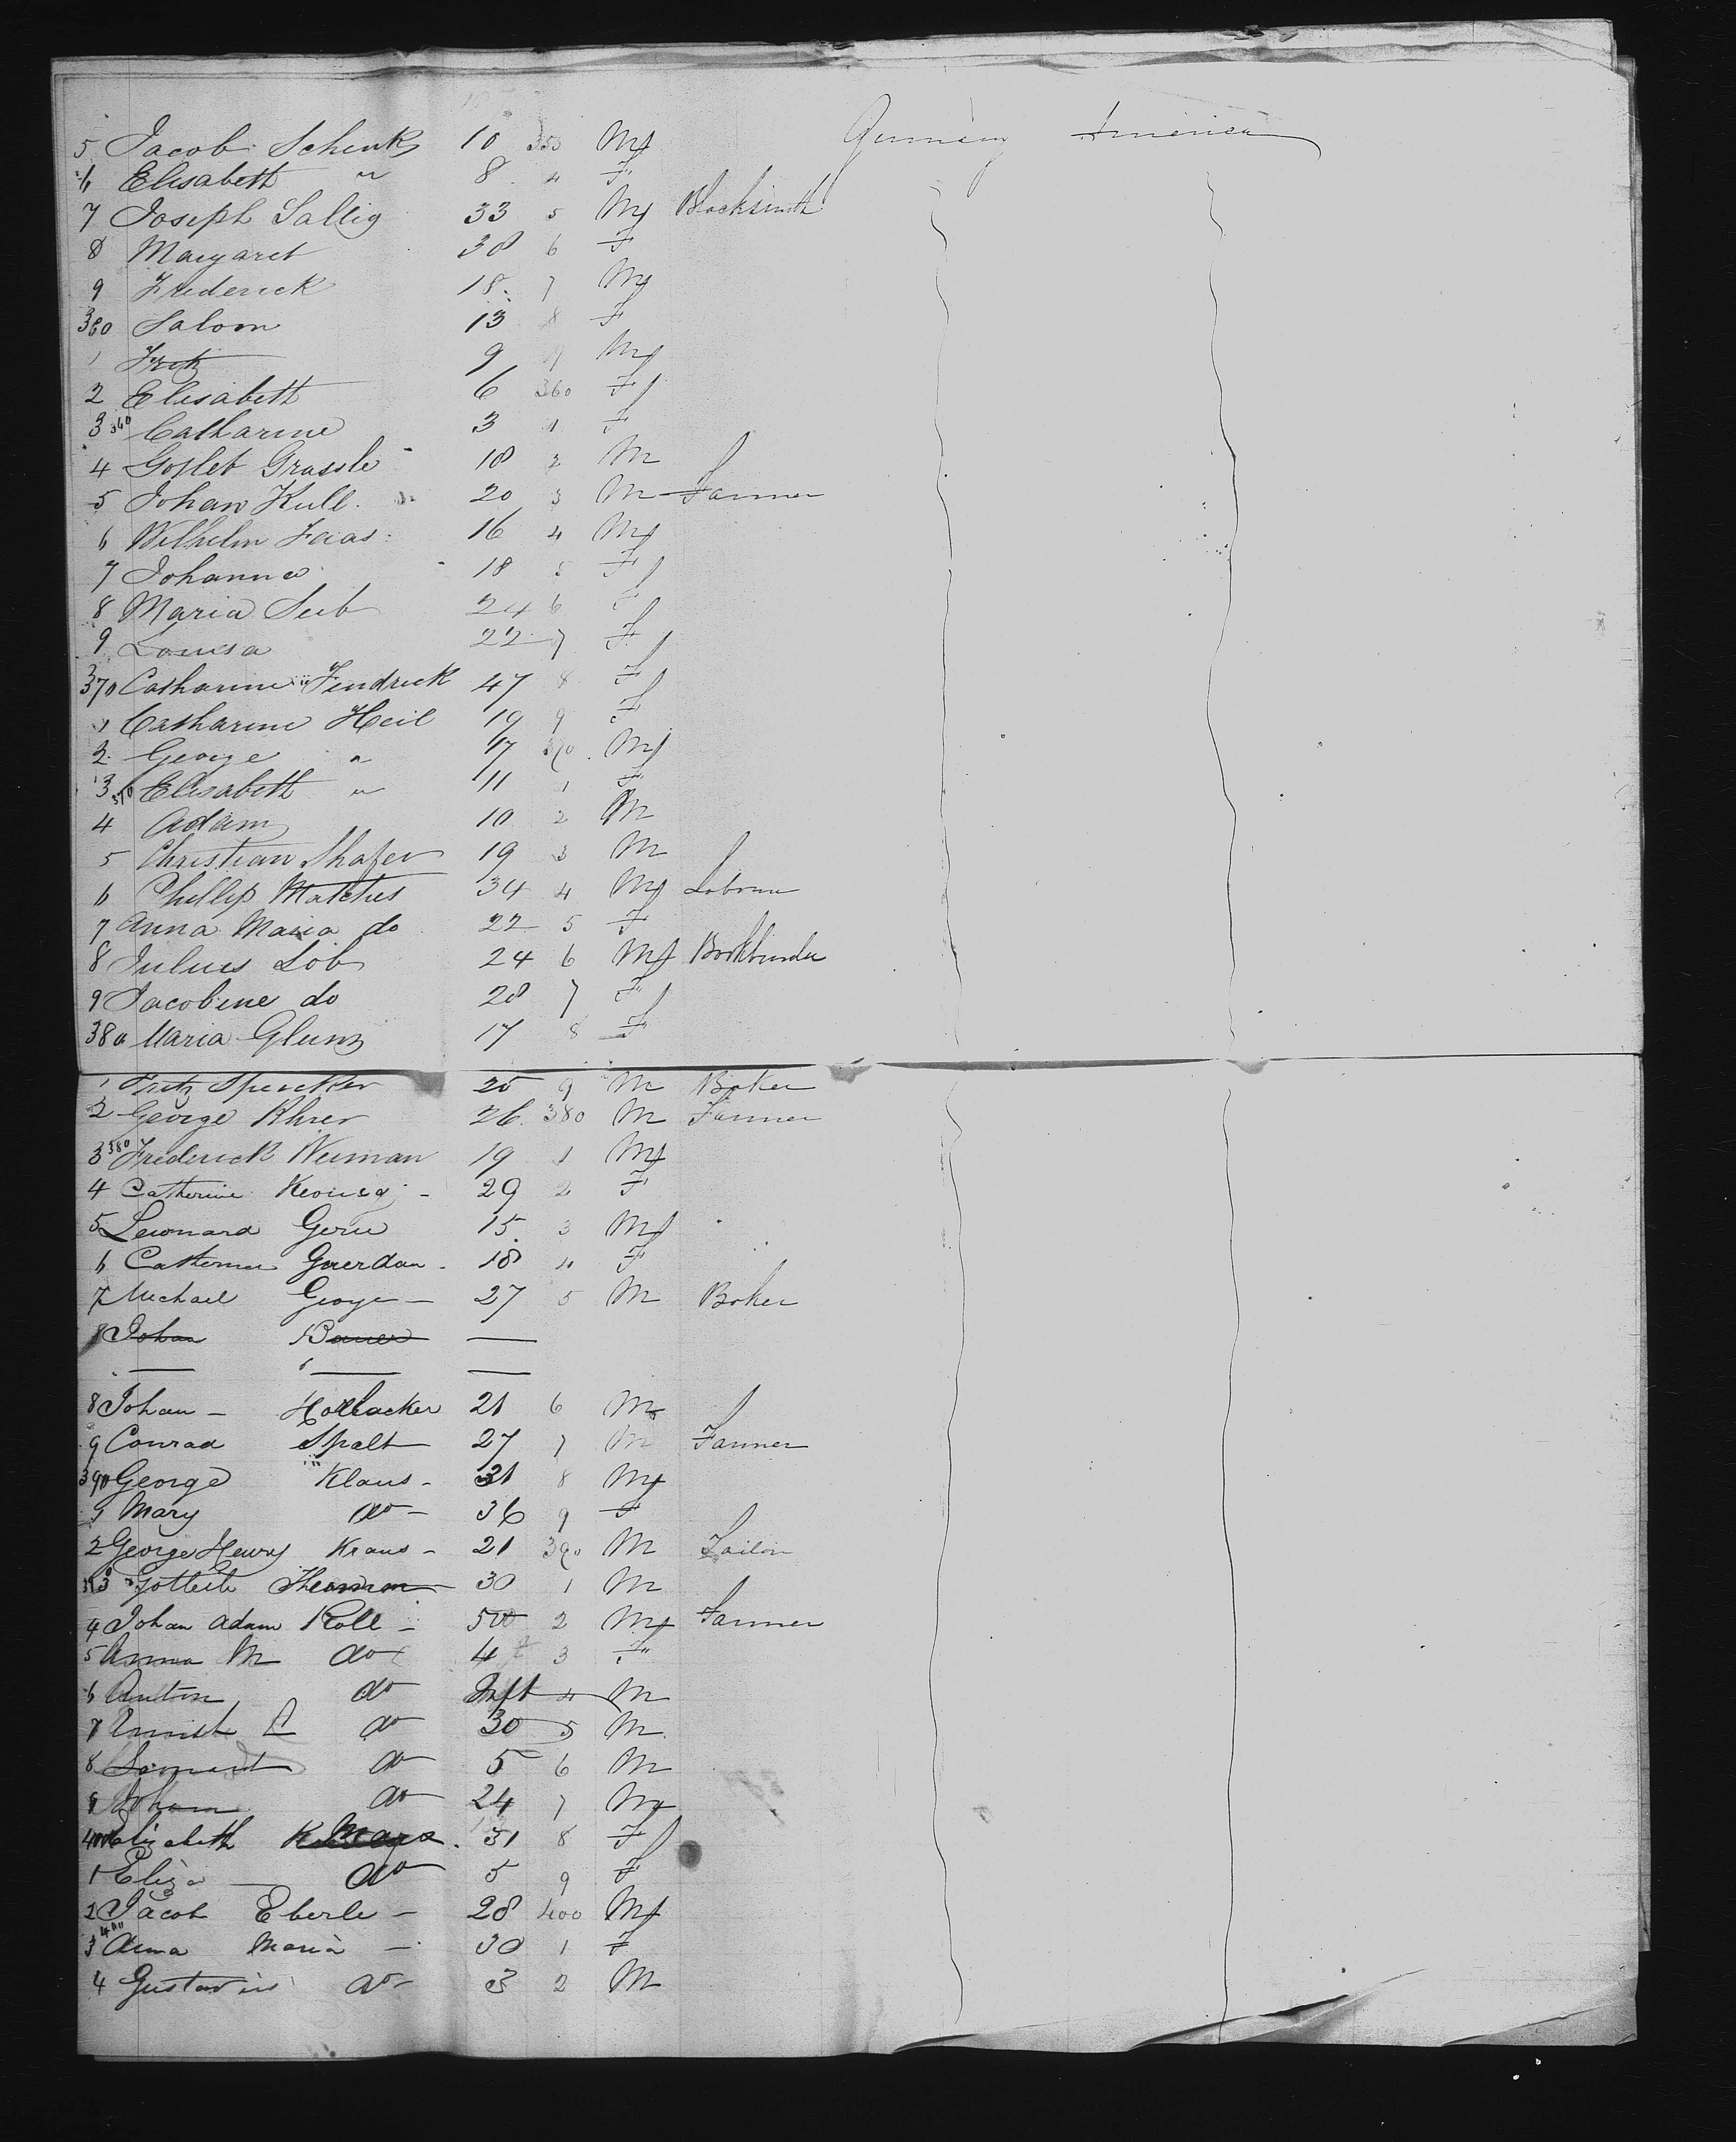 5 Jacob Schenk 10 353 M Germany America
6 Elisabeth " 8 4 F
7 Joseph Sallig 33 5 M Blacksmith
8 Margaret 38 6 F
9 Frederick 18 7 M
360 Salom 13 8 F
1 Fritz 9 9 M
2 Elisabeth 6 360 F
3 360 Catharine 3 1 F
4 Gotleb Grassle 18 2 M
5 Johan Kull 20 3 M Farmer
6 Wilhelm Faas 16 4 M
7 Johanna 18 5 F
8 Maria Seib 24 6 F
9 Louisa 22 7 F
370 Catharine Fendrick 47 8 F
1 Catharine Heil 19 9 F
2 George " 17 370 M
3 370 Elisabeth " 11 1 F
4 Adam 10 2 M
5 Christian Shafer 19 3 M
6 Phillip Matthes 34 4 M
7 Anna Maria do 22 5 F
8 Julius Lob 24 6 M Bookbinder
9 Jacobine do 28 7 F
380 Maria Glunz 17 8 F
1 Fritz Spencker 25 9 M Baker
2 George Rhrer 26 380 M Farmer
3 380 Frederick Neuman 19 1 M
4 Catherine 29 2 F
5 Leonard 15 3 M
6 Catherine 18 4 F
7 Michael George 27 5 M Baker
8 Johan Bauer —
8 Johan - Hollacker 21 6 M
9 Conrad Spalt 27 7 M Farmer
390 George Klaus - 31 8 M
1 Mary do - 36 9 F
2 George Henry Kraus - 21 390 M Tailor
3 Gottleib 30 1 M
4 Johan Adam Roll - 50 2 M Farmer
5 Anna M do 4 3 F
6 Anton do Inft 4 M
7 do 30 5 M
8 do 5 6 M
9 Johann do 24 7 M
400 Elizabeth 31 8 F
1 Eliza — do 5 9 F
2 Jacob Eberle - 28 400 M
3 400 Anna Maria - 30 1 F
4 Gustavus do - 3 2 M